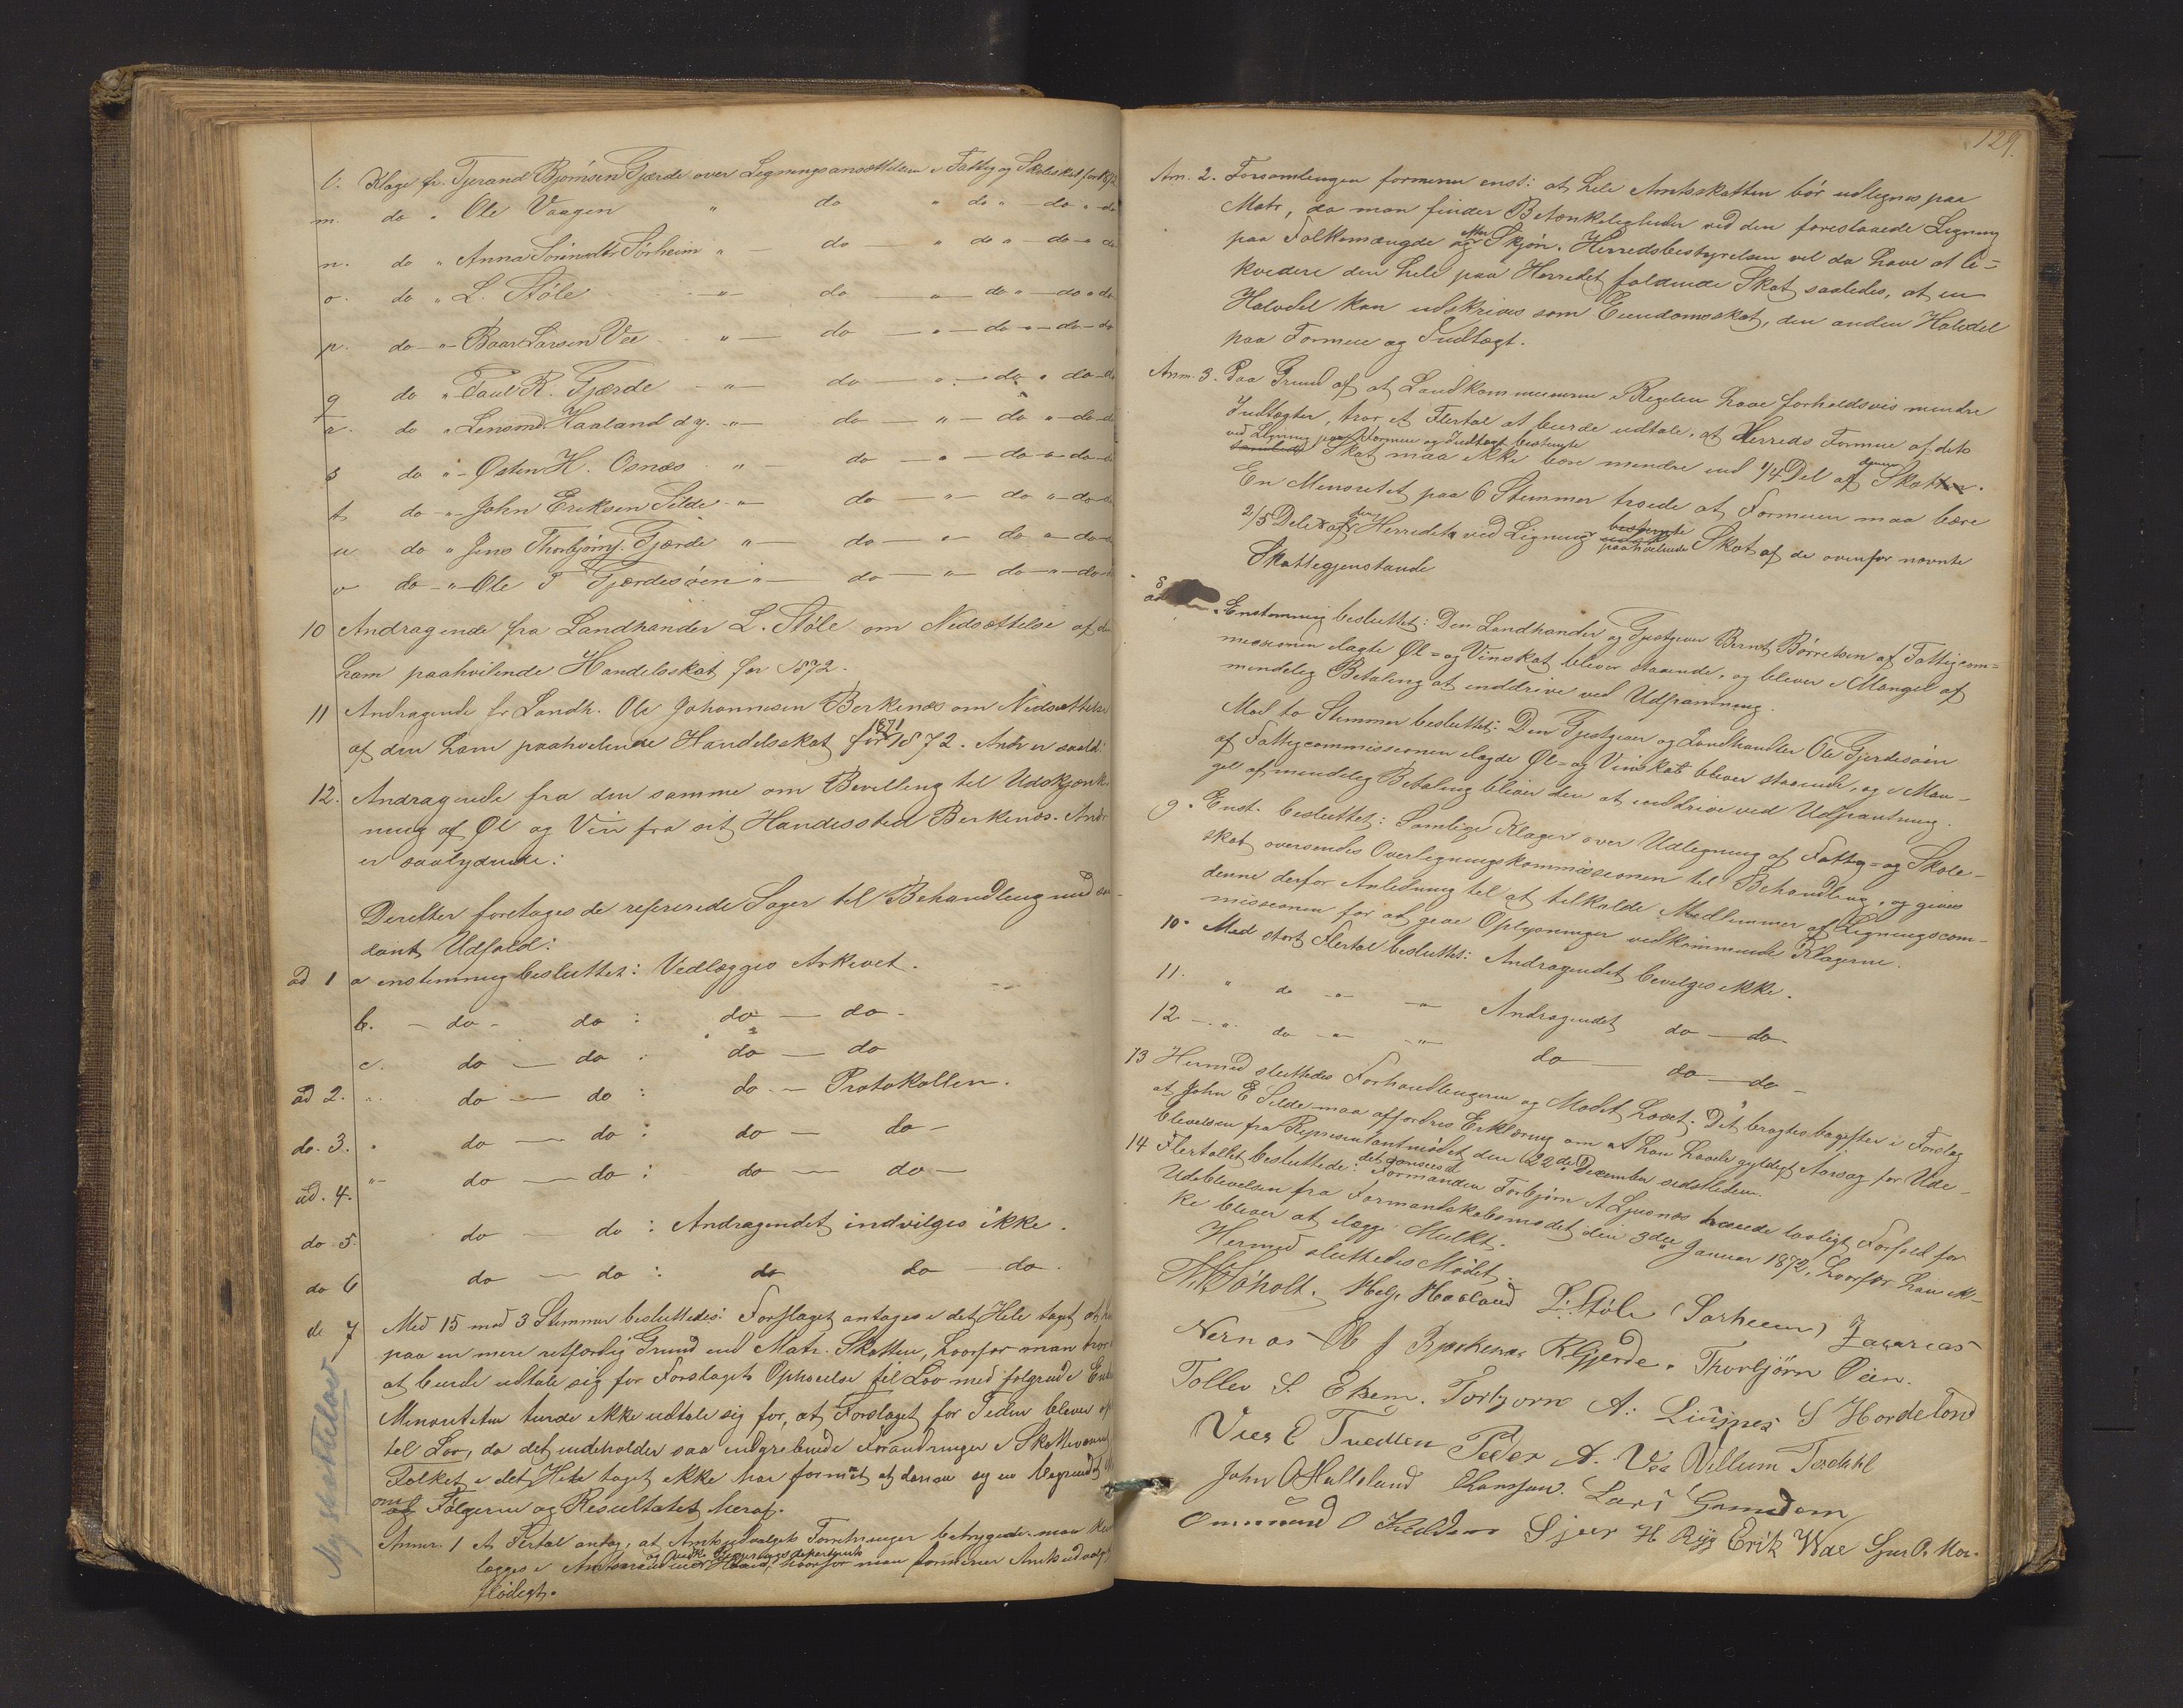 l. Klage fr. Tjerand Bjørnsen Gjærde over Ligningsansættelsen i Fattig og Skoleskat for 1872
m. do " Ole Vaagen " do " do " - do " - do
n. do " Anna Sørensdtr Sørheim " - do - " do " - do - " do
o. do " L. Støle - " - do - " - do " - do " do
p. do - " - Baar Larsen Vee " - do - " - do - " - do - do
q do " Paul R. Gjærde - " - do - " - do " do - do
r. do " Lensmd. Haaland d.y. - " - do - " - do " - do - do
s do " - Østen H. Osnæs " - do - " - do - " - do - do
t do - " - John Eriksen Silde - " - do - " - do " - do - do
u do " Jens Thorbjørns. Gjærde " - do - " - do " - do - do
v do - " - Ole P Gjærdesøen " - do - " - do - " - do - do
10 Andragende fra Landhandler L. Støle om Nedsættelse af den
ham paahvilende Handelsskat for 1872.
11 Andragende fr Landh. Ole Johannesen Berkenæs om Nedsættelse
af den ham paahvilende Handelsskat for 1871 1872. Andr er saald:
12. Andragende fra den samme om Bevilling til Udskjænk-
ning af Øl og Vin fra sit Handelssted Berkenæs. Andr
er saalydende:
Derefter foretages de refererede Sager til Behandling med saa-
dant Udfald:
ad 1 a enstemmig besluttet: Vedlægges Arkivet.
b. - do - do : do - do -
c. do - do : do - do
ad 2. " do - do : do - Protokollen.
do. 3. " do - do : do - do -
ad. 4. " - do - do : do - do -
do 5. do - do : Andragendet indvilges ikke.
do 6 do - do : do do - do.
do 7 Med 15 mod 3 Stemmer besluttedes: Forslaget antages i det Hele taget at
paa en mere retfærdig Grund end Matr. Skatten, hvorfor man tror
at burde udtale sig for Forslagets Ophøielse til Lov med følgende
Minoriteten turde ikke udtale sig for, at Forslaget for Tiden bliver
til Lov, da det indeholder saa indgribende Forandringer i Skattevæsenet
Folket i det Hele taget ikke har formået at danne sig en begrundet
om Følgerne og Resultatet heraf.
Ny skattelov
Anmr. 1 Et Flertal antog, at Amtsudvalgets Forretninger betryggede man kan
lægges i Amtmandens og vedk. Regjeringsdepartements Haand, hvorfor man formener Amtsudvalget
flødigt.
129.
Anm. 2. Forsamlingen formener enst: at hele Amtsskatten bør udlignes paa
Matr, da man finder Betænkeligheder ved den foreslaaede Ligning
paa Folkemængde og efter Skjøn. Herredsbestyrelsen vil da have at li-
kvidere den hele paa Herredet faldende Skat saaledes, at en
Halvdel kan udskrives som Eiendomsskat, den anden Halvdel
paa Formue og Indtægt.
Anm. 3. Paa Grund af at Landkommunerne i Regelen have forholdsvis mindre
Indtægter, tror et Flertal at burde udtale, at Herreds Formue af dets
ved Ligning paa Formue og Indtægt bestemte
samlede Skat maa ikke bære mindre end 1/4 Del af denne Skatten.
En Minoritet paa 6 Stemmer troede at Formuen maa bære
2/5 Dele af den Herredet ved Ligning bestemte paahvilende Skat af de ovenfor nævnte
Skattegjenstande
8 ad Enstemmig besluttet: Den Landhandler og Gjestgiver Bernt Børretsen af Fattigcom-
missionen ilagte Øl- og Vinskat bliver staaende, og bliver i Mangel af
mindelig Betaling at inddrive ved Udpantning.
Mod to Stemmer besluttet: Den Gjestgiver og Landhandler Ole Gjerdesøen
af Fattigcommissionen ilagde Øl- og Vinskat bliver staaende, og i Man-
gel af mindelig Betaling bliver den at inddrive ved Udpantning.
9. Enst. besluttet: Samlige Klager over Udligning af Fattig- og Skole-
skat oversendes Overligningskommissionen til Behandling, og gives
denne derfor Anledning til at tilkalde Medlemmer af Ligningscom-
missionen for at give Oplysninger vedkommende Klagerne.
10. Med stort Flertal besluttet: Andragendet bevilges ikke.
11. " do - " - " Andragendet do - do.
12 - " - do - " - " - do - do - do -
13 Hermed sluttedes Forhandlingerne og Mødet hævet. Det bragtes bagefter i Forslag
at John E Silde maa affordres Erklæring om at han havde gyldigt Aarsag for Ude-
blivelsen fra Representantmødet den 22de December sidstleden.
14 Flertallet besluttede: det ansees at Formanden Torbjørn A Ljusnæs havde lovligt Forfald for
Udeblivelsen fra Formandskabsmødet den 3die Januar 1872, hvorfor han ik-
ke bliver at ilægge Mulkt.
Hermed sluttedes Mødet.
Søholt. Helje Haaland L. Støle (Sørheim) Zacarias
Nernæs O J Bjerkenæs R Gjerde. Thorbjørn Øien.
Tollev S. Ekrem. Torbjørn A. Liusnes S Hordeland
Vier E Tvedten Peder A. Vea Villum Terdahl
John O Hulleland Hanssen. Lars Grimdem
Ommund O Sjur H Ryg Erik Vae Sjur O. Mo.